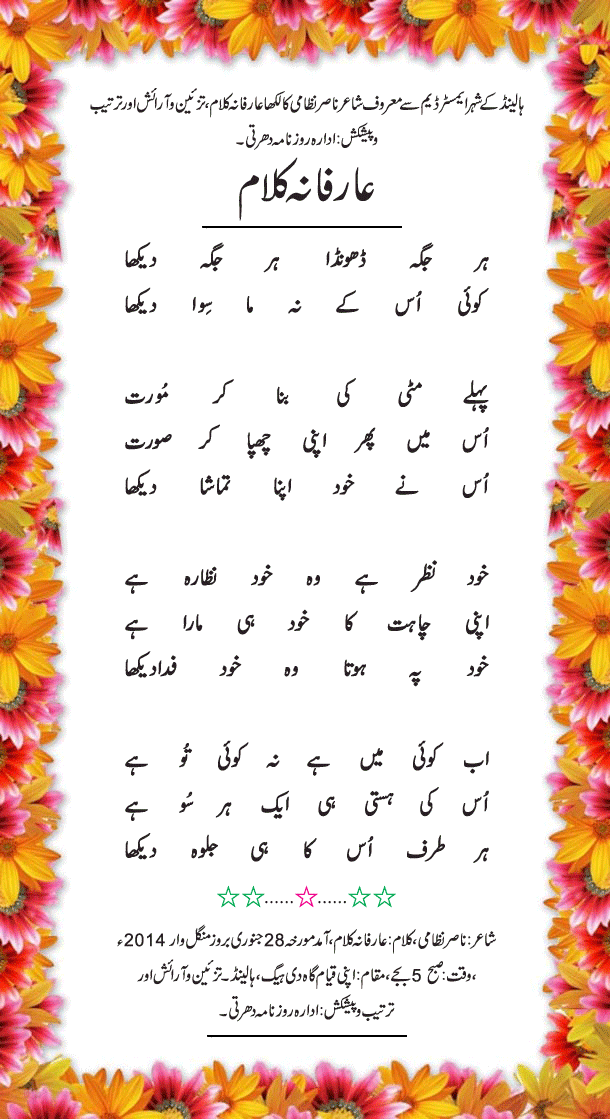 ہالینڈ کے شہر ایمسٹرڈیم سے معروف شاعر ناصر نظامی کا لکھا عارفانہ کلام، تزئین و آرائش اور ترتیب
و پیشکش: ادارہ روزنامہ دھرتی۔
عارفانہ کلام
ہر جگہ ڈھونڈا ہر جگہ دیکھا
کوئی اُس کے نہ ما سِوا دیکھا
پہلے مٹی کی بنا کر مُورت
اُس میں پھر اپنی چھپا کر صورت
اُس نے خود اپنا تماشا دیکھا
خود نظر ہے وہ خود نظارہ ہے
اپنی چاہت کا خود ہی مارا ہے
خود پہ ہوتا وہ خود فدا دیکھا
اب کوئی میں ہے نہ کوئی تُو ہے
اُس کی ہستی ہی ایک ہر سُو ہے
ہر طرف اُس کا ہی جلوہ دیکھا
☆☆......☆......☆☆
شاعر: ناصر نظامی، کلام: عارفانہ کلام، آمد مورخہ 28 جنوری بروز منگل وار 2014ء
،وقت: صبح 5 بجے، مقام: اپنی قیام گاہ دی ہیگ، ہالینڈ۔ تزئین و آرائش اور
ترتیب و پیشکش: ادارہ روزنامہ دھرتی۔